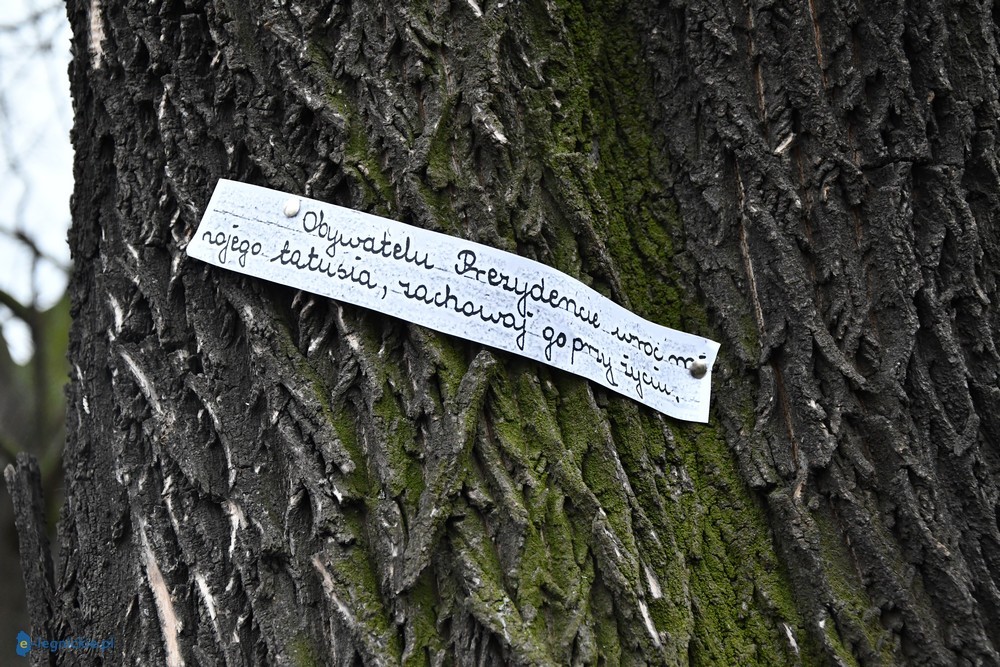 Obywatelu Prezydencie wróć mi
mojego tatusia, zachowaj go przy życiu.
e-legnickie.pl